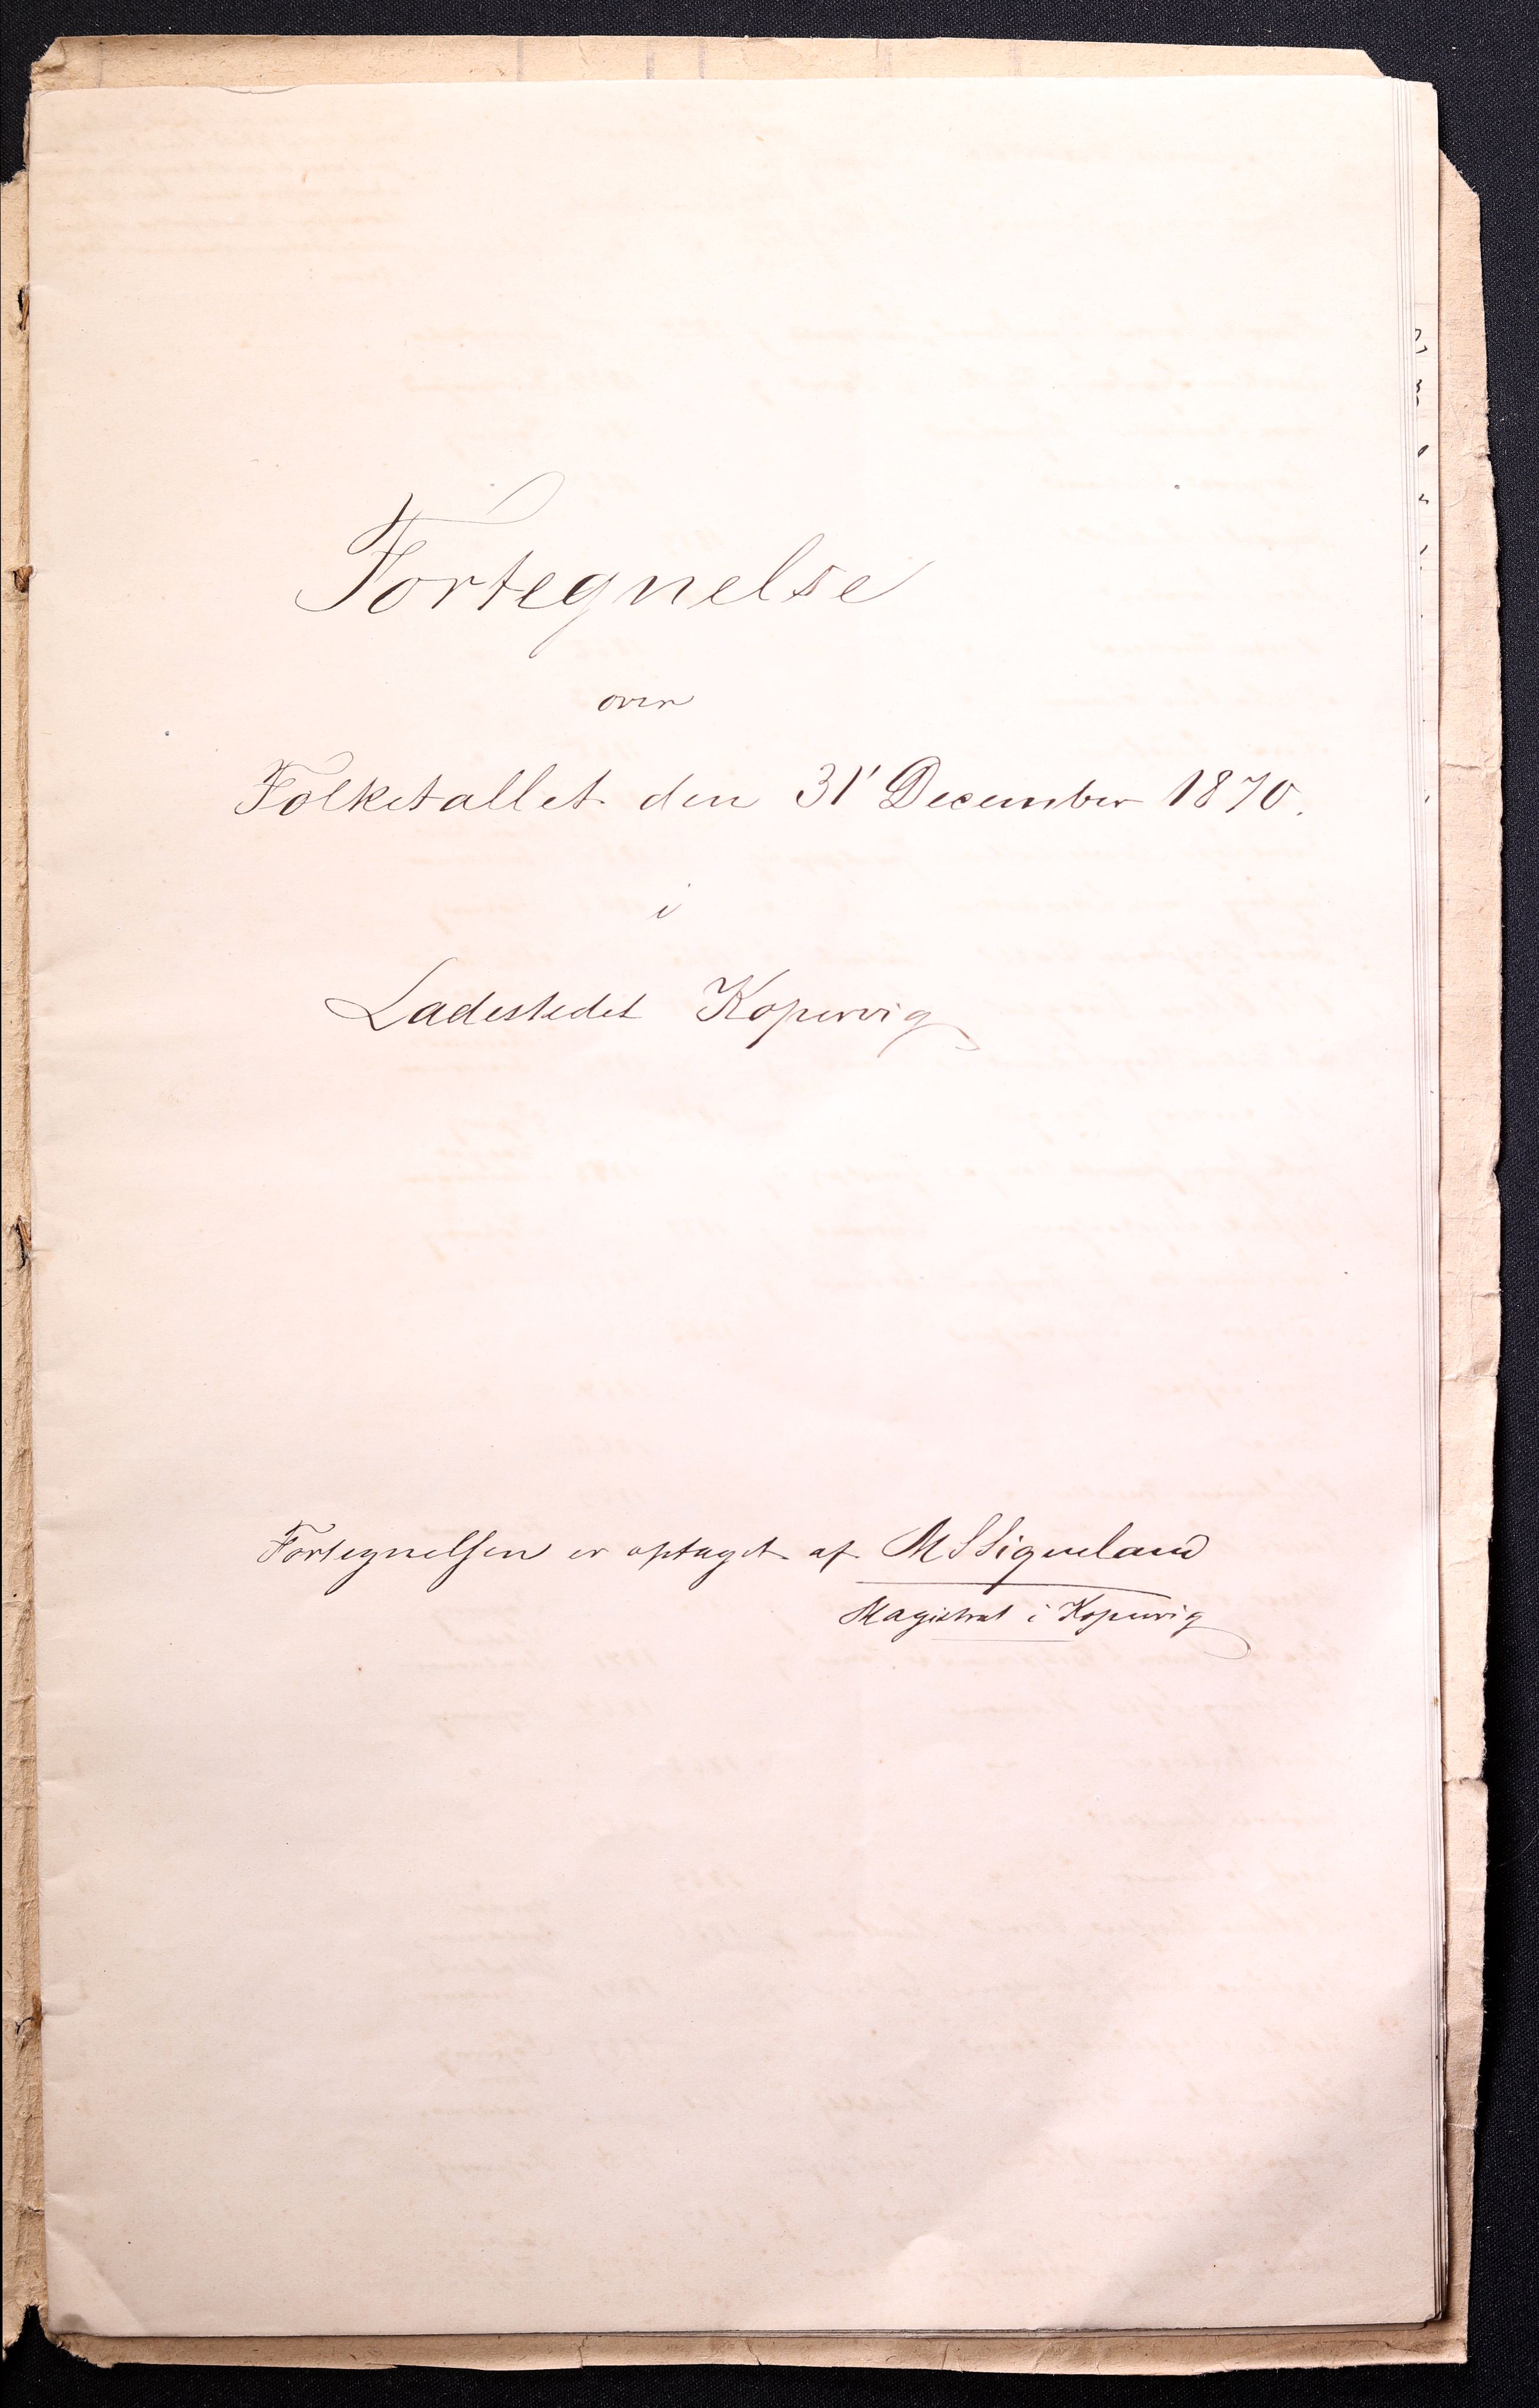 Fortegnelse
over
Folketallet den 31' December 1870.
i
Ladestedet Kopervig
Fortegnelsen er optaget af M S Siqveland
Magistrat i Kopervig